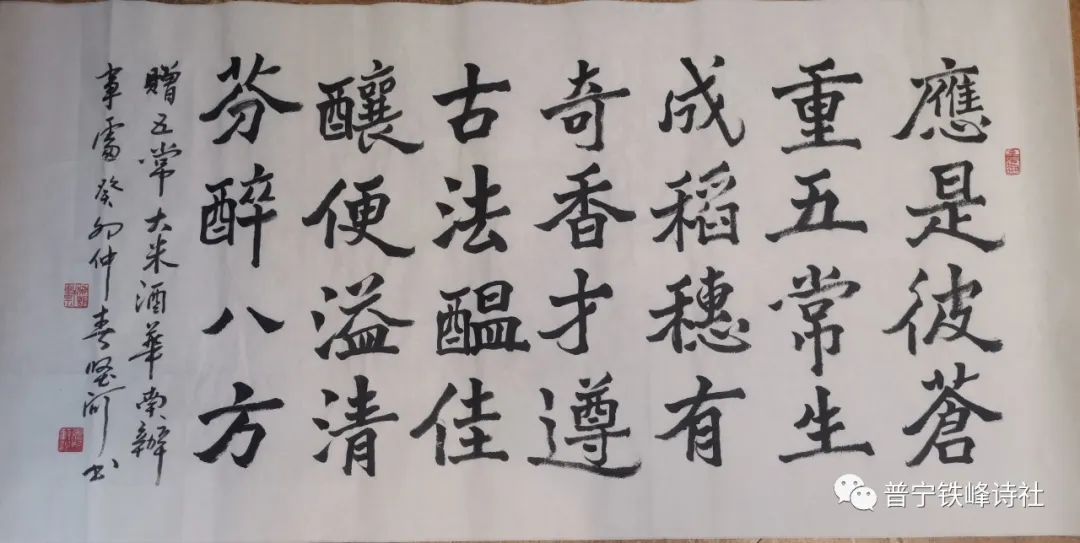 應是彼蒼
重五常生
成稻穗有
奇香才遵
古法醖佳
釀便溢清
芬醉八方
贈五常大米酒華南辦
事處癸卯仲春
书
普宁铁峰诗社